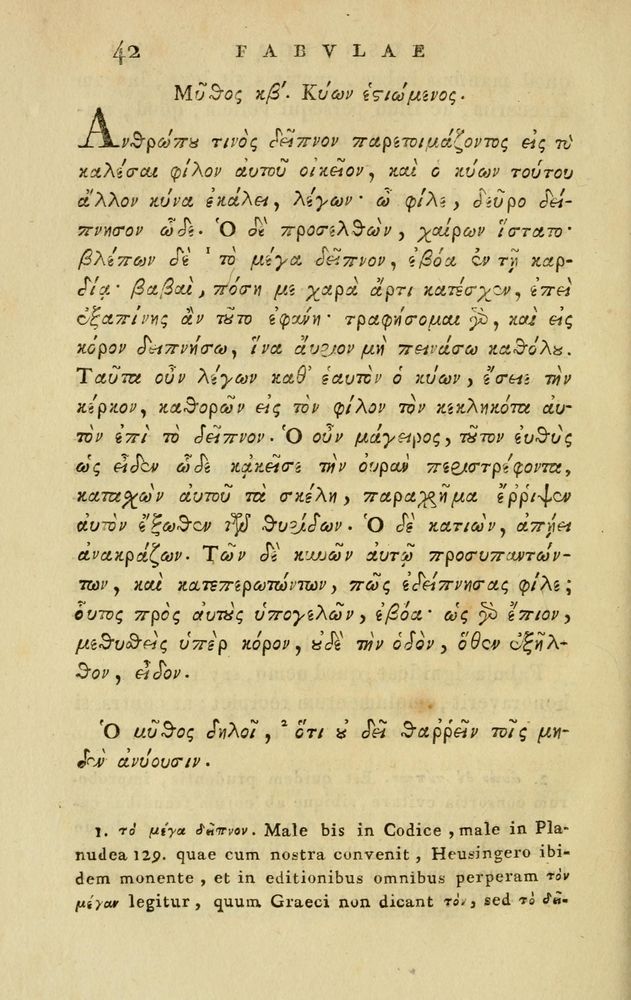 42 FABVLAE
Μῦθος κβ΄. Κύων ἑστιώμενος.
Ἀνθρώπου τινὸς δεῖπνον παρετοιμάζοντος εἰς τὸ
καλέσαι φίλον αὐτοῦ οἰκεῖον, καὶ ὁ κύων τούτου
ἄλλον κύνα ἐκάλει, λέγων· ὦ φίλε, δεῦρο δεί-
πνησον ὧδε. Ὁ δὲ προσελθὼν, χαίρων ἵστατο·
βλέπων δὲ ¹ τὸ μέγα δεῖπνον, ἐβόα ἐν τῇ καρ-
δίᾳ· βαβαὶ, πόση με χαρὰ ἄρτι κατέσχεν, ἐπεὶ
ἐξαπίνης ἂν τοῦτο ἐφανη· τραφήσομαι γὰρ, καὶ εἰς
κόρον δειπνήσω, ἵνα αὔριον μὴ πεινάσω καθόλου.
Ταῦτα οὖν λέγων καθ' ἑαυτὸν ὁ κύων, ἔσειε τὴν
κέρκον, καθορῶν εἰς τὸν φίλον τὸν κεκληκότα αὐ-
τὸν ἐπὶ τὸ δεῖπνον. Ὁ οὖν μάγειρος, τοῦτον εὐθὺς
ὡς εἶδεν ὧδε κἀκεῖσε τὴν οὐρὰν περιστρέφοντα,
κατασχὼν αὐτοῦ τὰ σκέλη, παραχρῆμα ἔῤῥιψεν
αὐτὸν ἔξωθεν τῶν θυρίδων. Ὁ δὲ κατιὼν, ἀπῄει
ἀνακράζων. Τῶν δὲ κυνῶν αὐτῷ προσυπαντών-
των, καὶ κατεπερωτώντων, πῶς ἐδείπνησας φίλε;
οὗτος πρὸς αὐτοὺς ὑπογελῶν, ἐβόα· ὡς γὰρ ἔπιον,
μεθυθεὶς ὑπὲρ κόρον, οὐδὲ τὴν ὁδὸν, ὅθεν ἐξῆλ-
θον, εἶδον.
Ὁ μῦθος δηλοῖ, ² ὅτι οὐ δεῖ θαῤῥεῖν τοῖς μη-
δὲν ἀνύουσιν.
1. τὸ μέγα δεῖπνον. Male bis in Codice, male in Pla-
nudea 129. quae cum nostra convenit, Heusingero ibi-
dem monente, et in editionibus omnibus perperam τὸν
μέγαν legitur, quum Graeci non dicant τὸν, sed τὸ δεῖ-